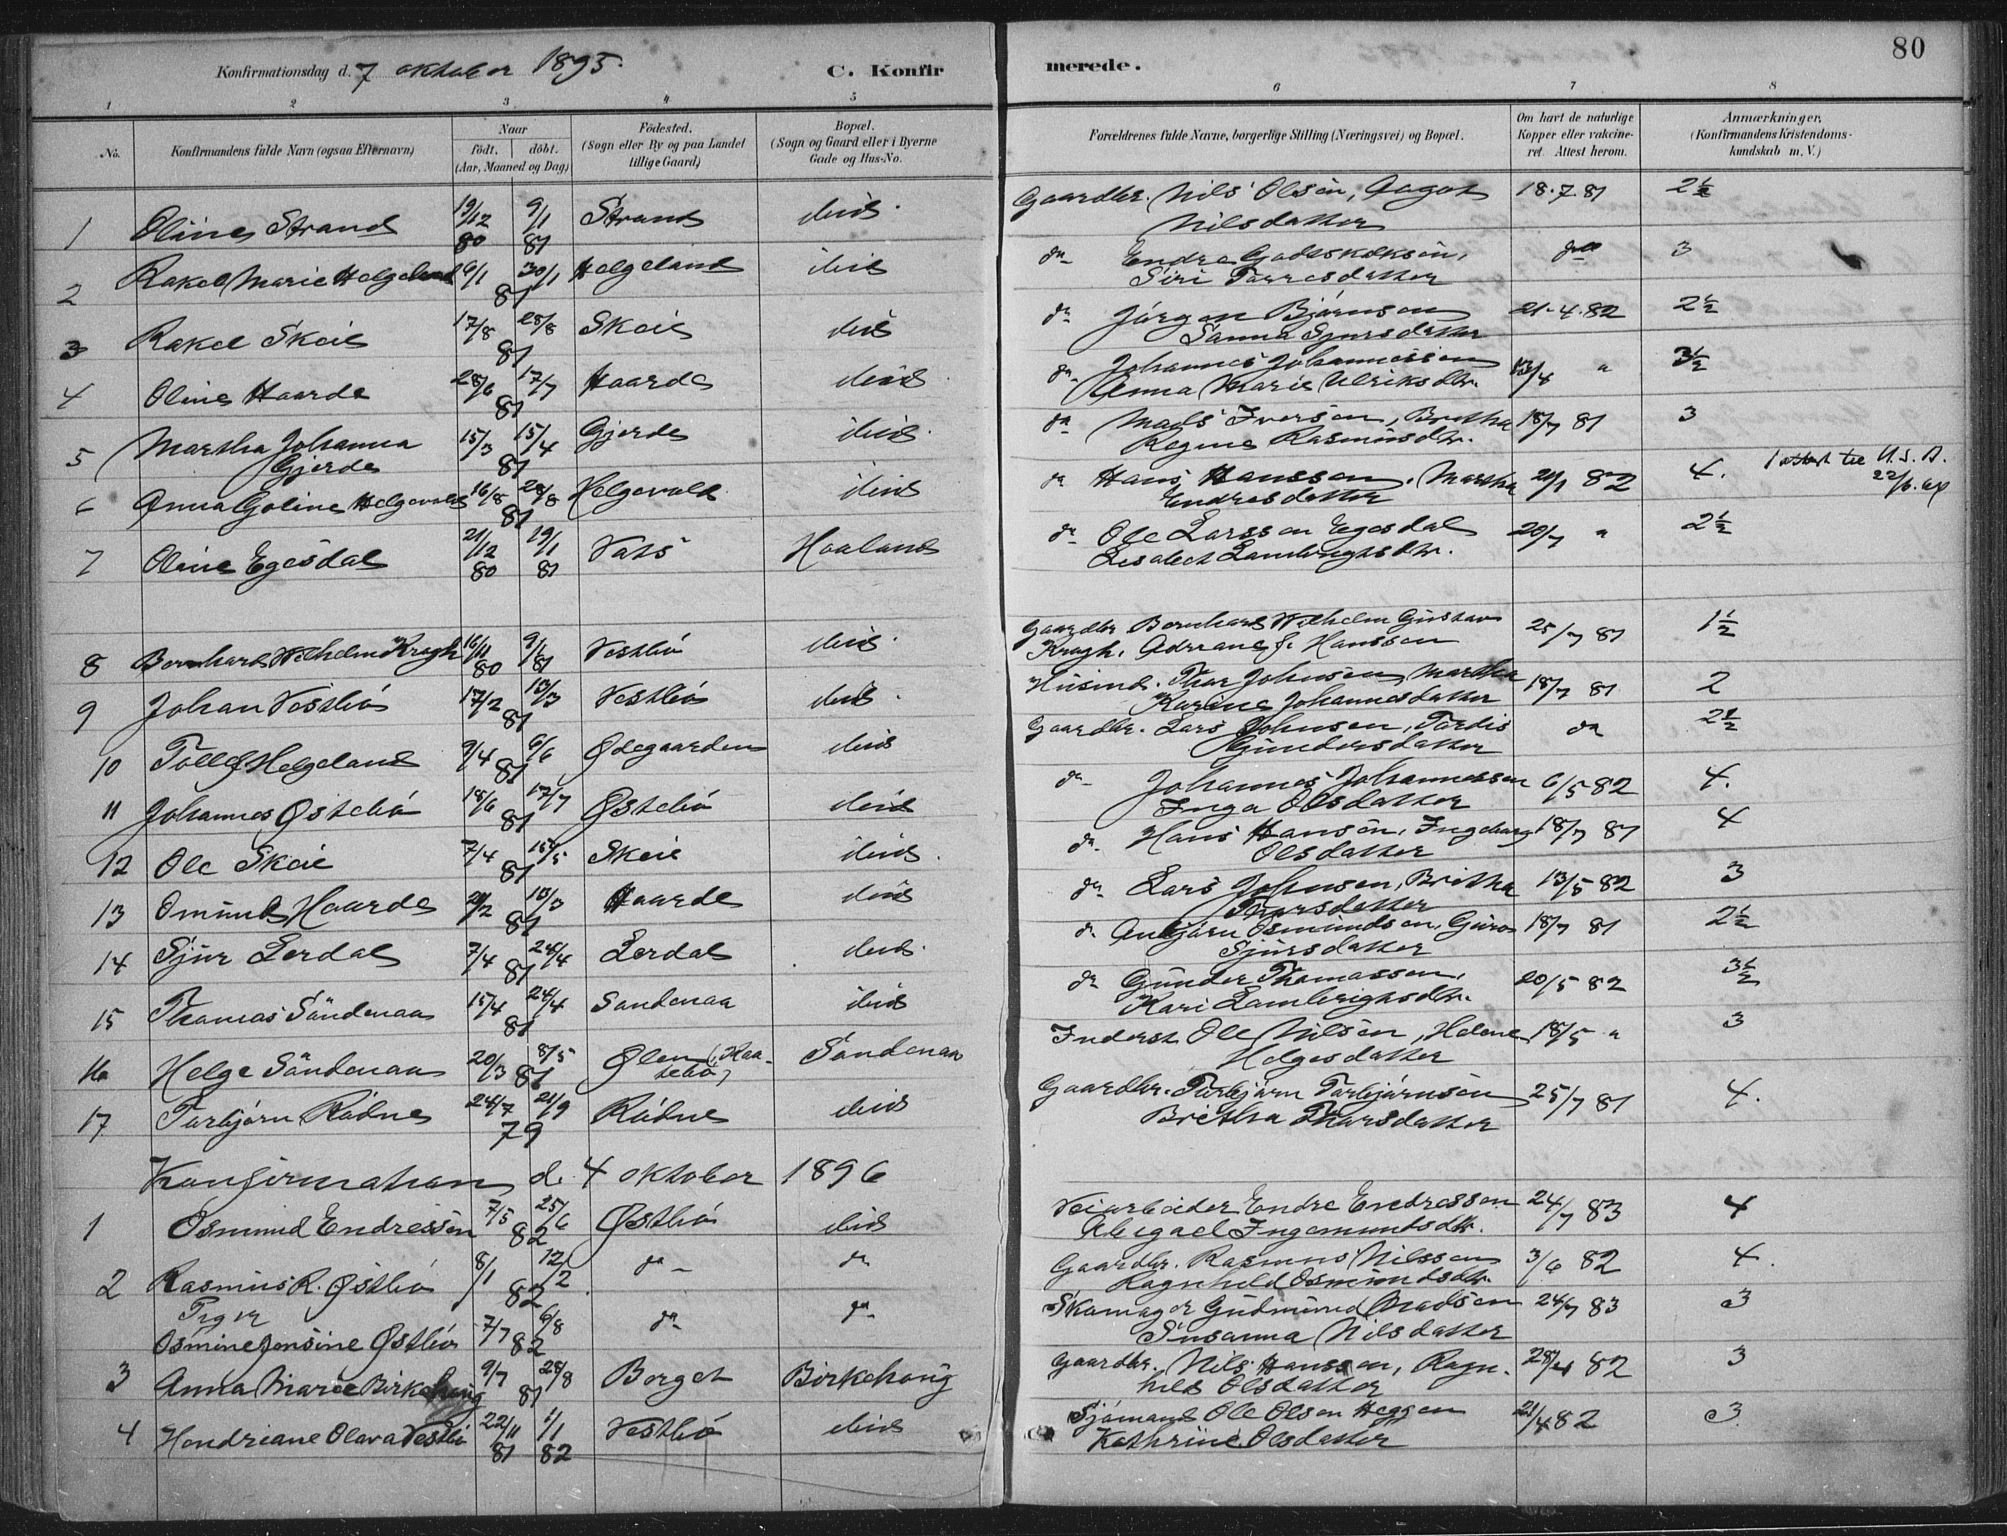 80
Konfirmationsdag d. 7 oktober 1895. C. Konfirmerede.
1 2 3 4 5 6 7 8
No. Konfirmandens fulde Navn (ogsaa Efternavn) Naar födt. döbt. (Aar, Maaned og Dag) Födested. (Sogn eller By og paa Landet tillige Gaard) Bopæl. (Sogn og Gaard eller i Byerne Gade og Hus-No. Forældrenes fulde Navne, borgerlige Stilling (Næringsvei) og Bopæl. Om havt de naturlige Kopper eller vakcineret. Attest herom. Anmærkninger, (Konfirmandens Kristendomskundskab m. V.)
1 Oline Strand 19/12 80 9/1 81 Strand ibid. Gaardbr. Nils Olsen, Aagot Nilsdatter 18.7.81 2½
2 Rakel Marie Helgeland 6/1 30/1 81 Helgeland ibid do Endre Siri Torresdatter do 3
3 Rakel Skeie 17/8 28/8 81 Skeie ibid do Jørgen Bjørnsen Sanna Sjursdatter 21.4.82 2½
4 Oline Haarde 28/6 17/7 81 Haarde ibid do Johannes Johannessen Anna Marie Ulriksdtr. 13/4 " 3½
5 Martha Johanna Gjerde 15/3 15/4 81 Gjerde ibid. do Mads Iversen, Bretha Regine Rasmusdtr. 18/7 81 3
6 Anna Goline Helgevold 16/8 28/8 81 Helgevold ibid do Hans Hanssen, Martha Endresdatter 29/1 82 4. attest til U.S.A. 22/6
7 Oline Egesdal 21/12 80 19/1 81 Vats Haaland do Ole Larssen Egesdal Lisabet Lambrigtsdtr. 20/7 " 2½
8 Bernhard Wilhelm Krogh 16/11 80 9/1 81 Vestbø ibid. Gaardbr Bernhard Wilhelm Gustav Krogh, Adriane f. Hanssen 25/7 81 1½
9 Johan Vestbø 17/2 13/3 81 Vestbø ibid. Husmd. Thor Johnsen, Martha Karine Johannesdatter 18/7 81 2
10 Tollef Helgeland 9/4 6/6 81 Ødegaarden ibid Gaardbr. Lars Johnsen, Tordis Gundersdatter do 2½
11 Johannes Østebø 18/6 17/7 81 Østebø ibid do Johannes Johannessen Inga Olsdatter 6/5 82 4.
12 Ole Skeie 7/4 15/5 81 Skeie ibid. do. Hans Hansen, Ingeborg Olsdatter 18/7 81 4
13 Omund Haarde 21/2 13/3 81 Haarde ibid do Lars Johnsen, Britha Thorsdatter 13/5 82 3
14 Sjur Lerdal 7/4 24/4 81 Lerdal ibid. do Anbjørn Osmundsen, Guro Sjursdatter 18/7 81 2½
15 Thomas Sandenaa 15/4 24/4 81 Sandenaa ibid do Gunder Thomassen, Kari Lambrigtsdtr. 20/5 82 3½
16 Helge Sandenaa 20/3 8/5 81 Ølen Sandenaa Inderst Ole Nilsen, Helene Helgesdatter 18/5 " 3
17 Torbjørn Rødne 24/7 21/9 79 Rødne ibid Gaardbr. Torbjørn Torbjørnsen Britha Thorsdatter 25/7 81 4.
Konfirmation d. 4 oktober 1896
1 Osmund Endressen 7/5 25/6 82 Østbø ibid Veiarbeider Endre Endressen Abigael Ingemundsdtr. 24/7 83 4
2 Rasmus R. Østbø 8/1 12/2 82 do do Gaardbr. Rasmus Nilssen Ragnhild Osmundsdtr. 3/6 82 4.
Piger
Osmine Jonsine Østbø 7/7 6/8 82 do do Skomager Gudmund Madsen Susanna Nilsdatter 24/7 83 3
3 Anna Marie Birkehaug 9/7 28/8 81 Borget Birkehaug Gaardbr. Nils Hanssen, Ragnhild Olsdatter 28/4 82 3
4 Hendriane Olava Vestbø 22/11 81 1/1 82 Vestbø ibid Sjømand Ole Olsen Heggen Kathrine Olsdatter 21/4 82 3.